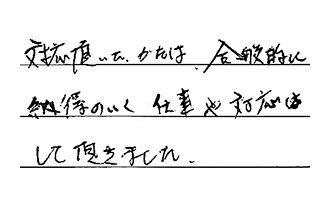 対応頂いた、かたは、全般的に
納得のいく 仕事や対応は
して頂きました.